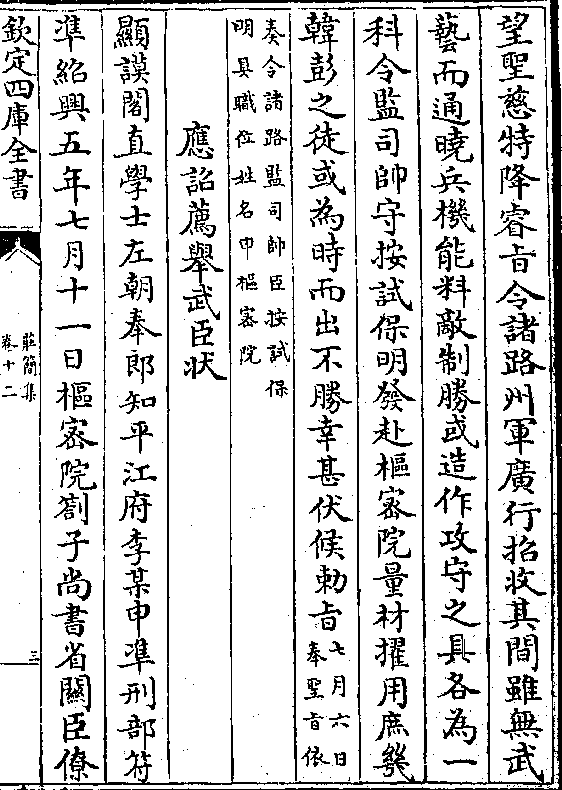 望聖慈特降睿㫖令諸路州軍廣行招收其間雖無武
藝而通曉兵機能料敵制勝或造作攻守之具各為一
科令監司帥守按試保明發赴樞宻院量材擢用庶幾
韓彭之徒或為時而出不勝幸甚伏候勅㫖七月六日奉聖㫖依
奏令諸路監司帥臣按試保
明具職位姓名申樞宻院
應詔薦舉武臣狀
顯謨閣直學士左朝奉郎知平江府李某申準刑部符
準紹興五年七月十一日樞宻院劄子尚書省關臣僚
欽定四庫全書
莊簡集
卷十二
三